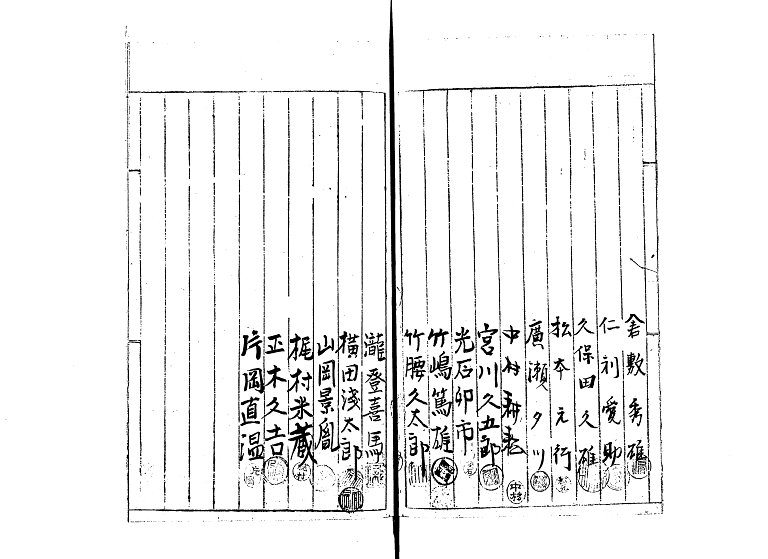 倉敷秀雄
仁利愛助
久保田久雄
松本元行
廣瀬夕川
中村耕耘
宮川久五郎
光石卯市
竹嶋篤雄
竹腰久太郎
瀧登喜馬
横田淺太郎
山岡景胤
梶村米蔵
正木久吉
片岡直温
中村